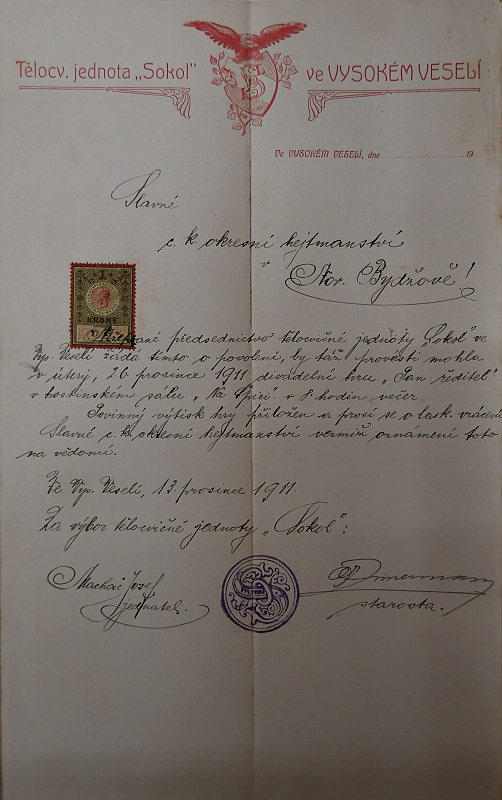 Tělocv. jednota „Sokol" ve VYSOKÉM VESELÍ
Ve VYSOKÉM VESELÍ, dne 19
Slavné
c. k. okresní hejtmanství
v Nov. Bydžově!
1
KRONE
předsednictvo tělocvičné jednoty „Sokol" ve
Vys. Veselí žádá tímto o povolení, by táž provésti mohla
v úterý, 26. prosince 1911 divadelní hru „Pan ředitel"
v hostinském sálu „Na Špici" v 8 hodin večer.
Povinný výtisk hry přiložen a prosí se o lask. vrácení
Slavné c. k. okresní hejtmanství vezmiž oznámení toto
na vědomí.
Ve Vys. Veselí, 13. prosince 1911.
Za výbor tělocvičné jednoty „Sokol":
Machač Josef
jednatel.
starosta.